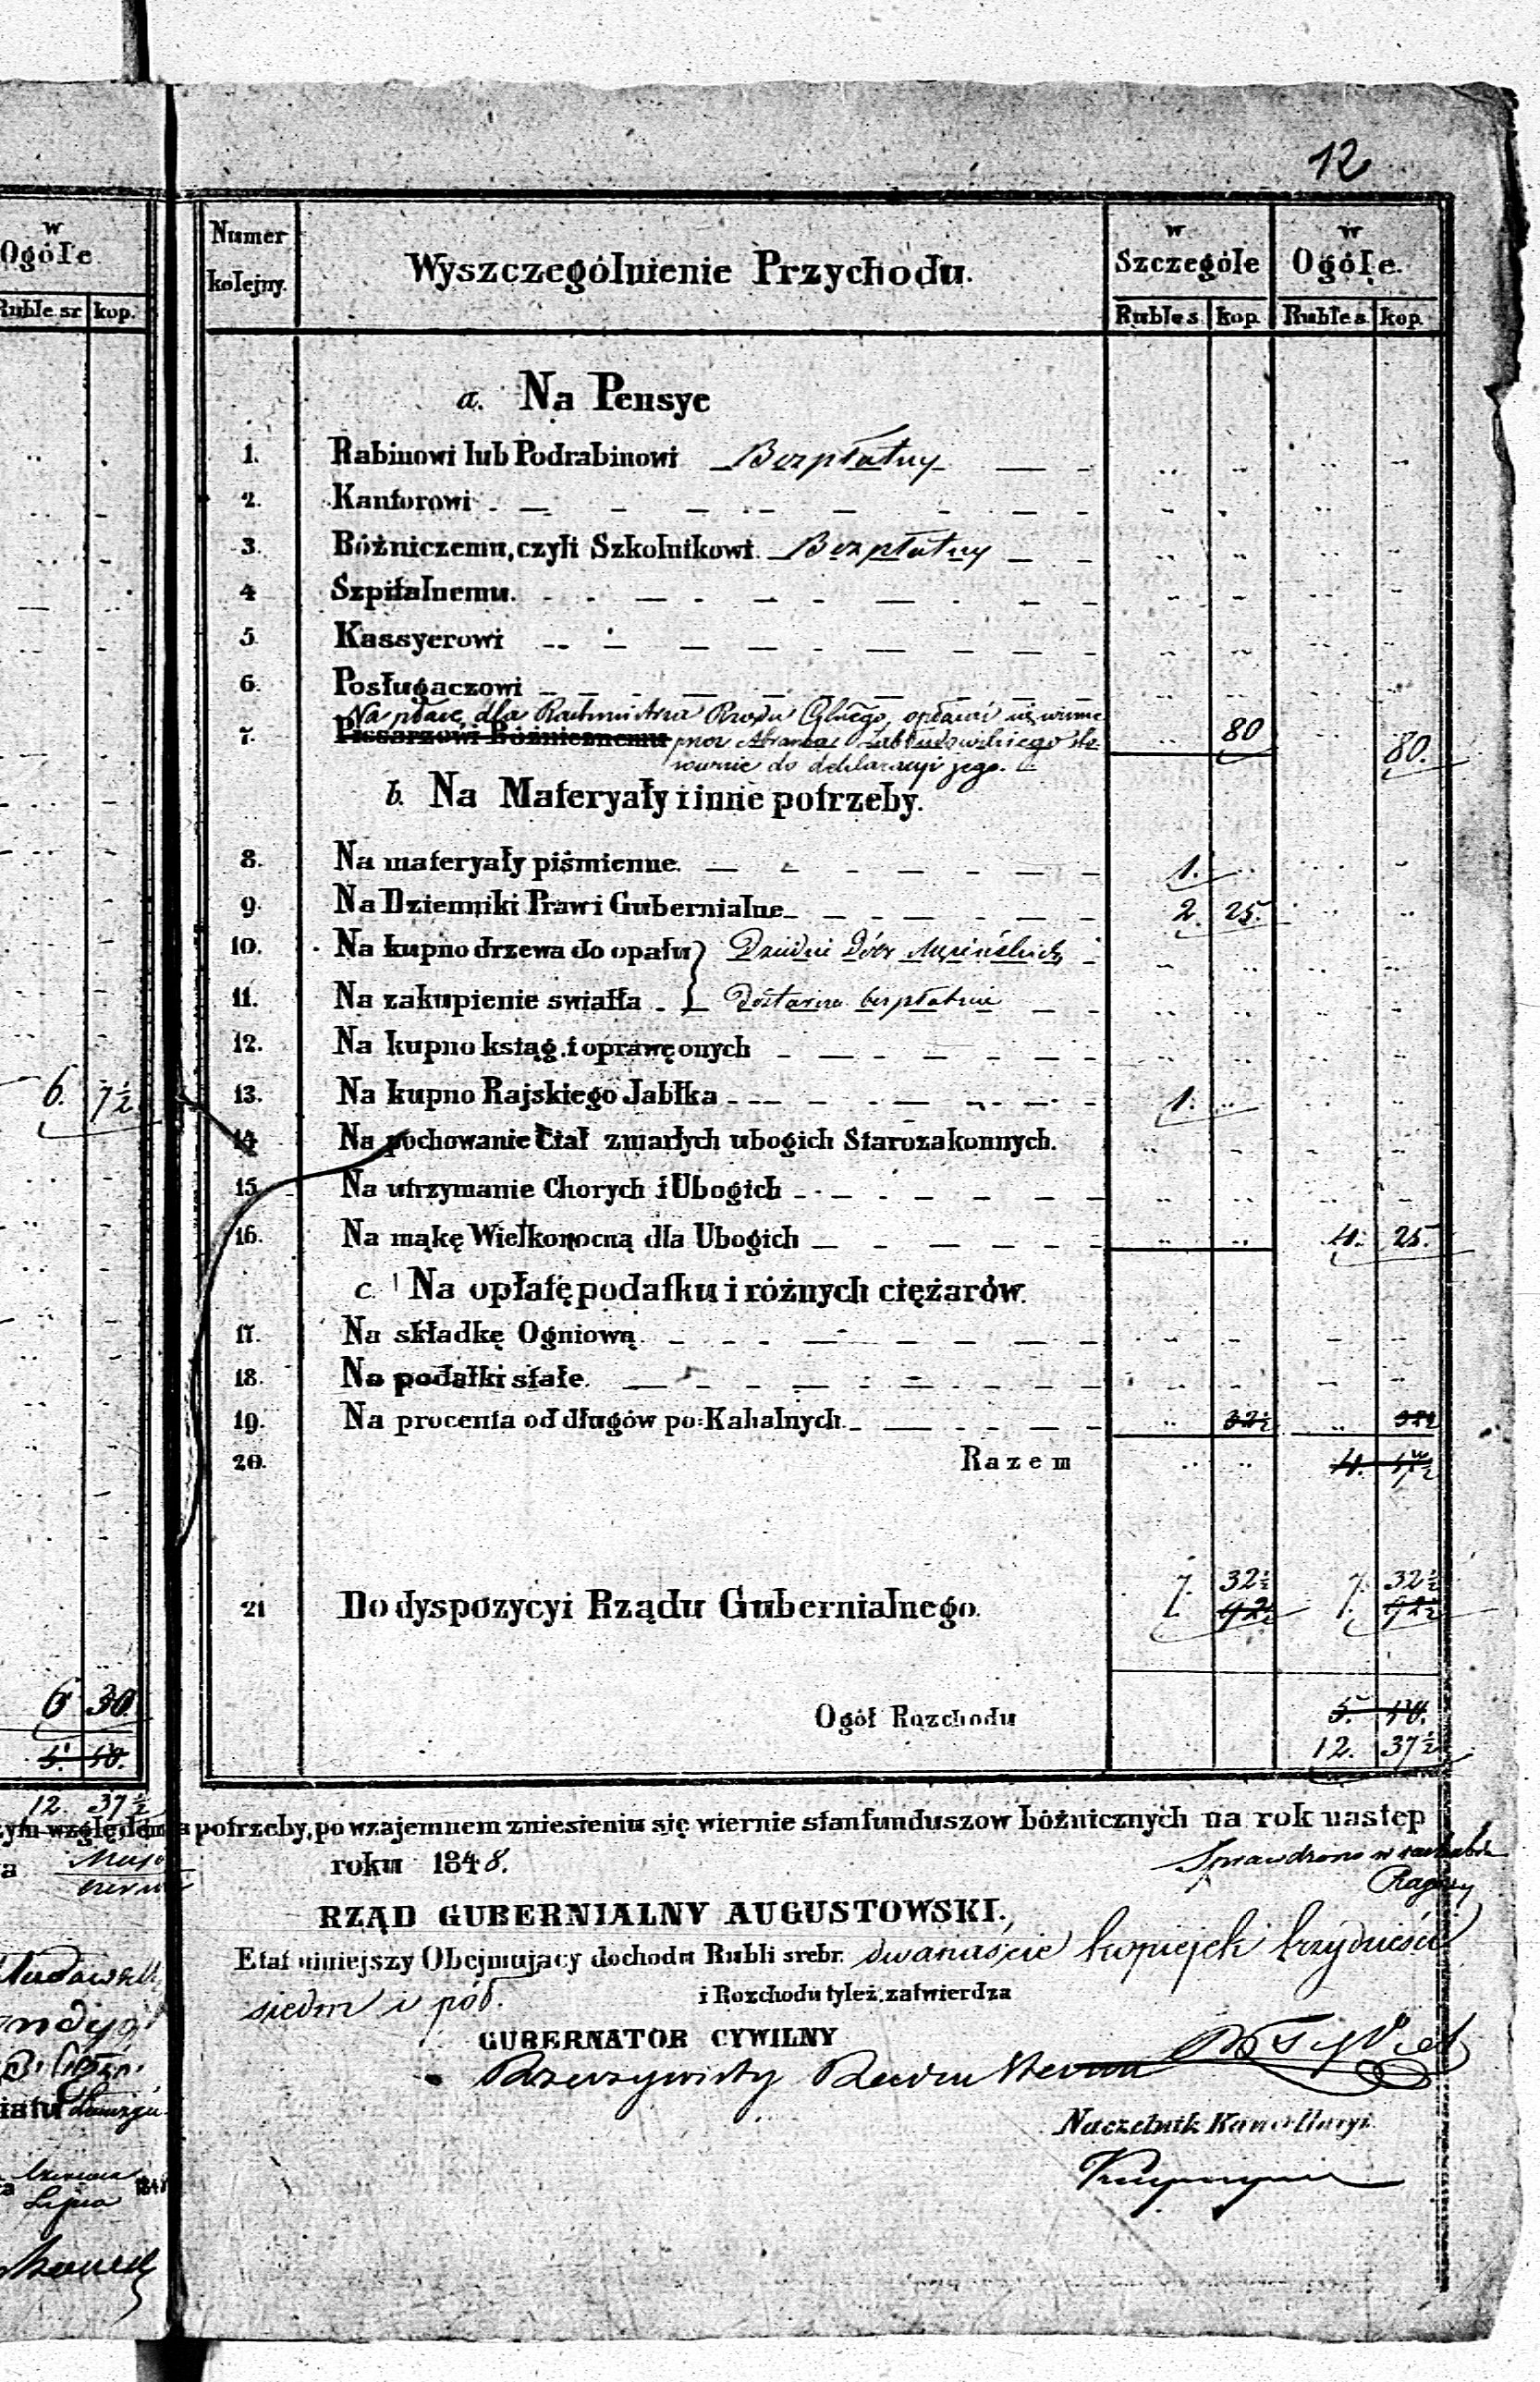 12
w
Ogóle.
Ruble sr kop.
6. 7½
6 30.
5. 50.
12. 37½
Numer
kolejny.
Wyszczególnienie Przychodu.
w
Szczególe
w
Ogóle.
Ruble s. kop. Ruble s. kop.
a. Na Pensye
1. Rabinowi lub Podrabinowi Bezpłatny
2. Kantorowi
3. Bóżniczemu, czyli Szkolnikowi. Bezpłatny
4 Szpitalnemu.
5 Kassyerowi
6. Posługaczowi
Na płace dla Rachmistrza Rządu opłacać się winne
7. Pissarzowi Bóżnicznemu przez Zabłudowskiego sto- 80 80.
sownie do deklaracyi jego.
b. Na Materyały i inne potrzeby.
8. Na materyały piśmienne. 1.
9. Na Dzienniki Praw i Gubernialne 2. 25.
10. Na kupno drzewa do opału Dziedzic Dóbr
11. Na zakupienie swiatła Dostarcza bezpłatnie
12. Na kupno ksiąg i oprawę onych
13. Na kupno Rajskiego Jabłka 1.
14 Na pochowanie Ciał zmarłych ubogich Starozakonnych.
15. Na utrzymanie Chorych i Ubogich
16. Na mąkę Wielkonocną dla Ubogich 4. 25.
c. Na opłatę podatku i różnych ciężarów.
17. Na składkę Ogniową.
18. Na podatki stałe.
19. Na procenta od długów po=Kahalnych. 32½ 32½
20. Razem 4. 57½
7. 32½ 7. 32½
21 Do dyspozycyi Rządu Gubernialnego. 92½ 92½
Ogół Rozchodu 5. 50.
12. 37½
potrzeby, po wzajemnem zniesieniu się wiernie stan funduszow bóżnicznych na rok następ
roku 1848.
Sprawdzono w rachubie
RZĄD GUBERNIALNY AUGUSTOWSKI.,
Etat niniejszy Obejmujący dochodu Rubli srebr. dwanaście kopiejek trzydzieści
siedm i pół. i Rozchodu tyleż, zatwierdza
GUBERNATOR CYWILNY
Rzeczywisty Radca Stanu
Naczelnik Kancellaryi.